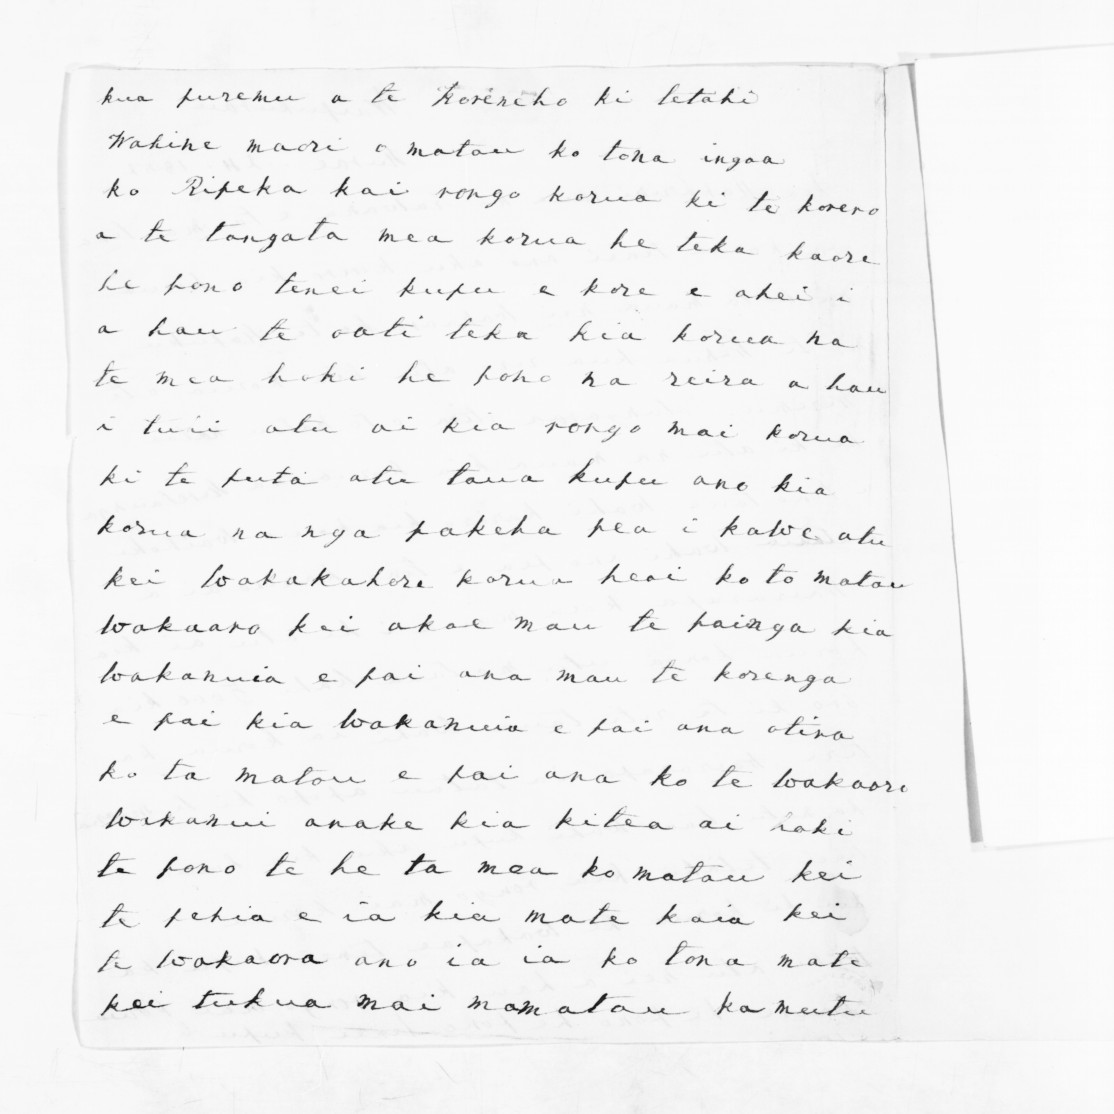 kua puremu a te Koreneho ki tetahi
Wahine maori o matau ko tona ingoa
ko Ripeka kai rongo korua ki te korero
a te tangata mea korua he teka kaore
he pono tenei kupu e kore e ahei i
a hau te oati teka kia korua na
te mea hoki he pono na reira a hau
i tuii atu ai kia rongo mai korua
ki te puta atu taua kupu ano kia
korua na nga pakeha pea i kawe atu
kei wakakahore korua heoi ko to matau
wakaaro kei akoe mau te painga kia
wakanuia e pai ana mau te korenga
e pai kia wakanuia e pai ana otira
ko ta matou e pai ana ko te wakaaro
wakanui anake kia kitea ai hoki
te pono te he ta mea ko matau kei
te pehia e ia kia mate kaia kei
te wakaora ano ia ia ko tona mate
kei tukua mai mamatau ka mutu